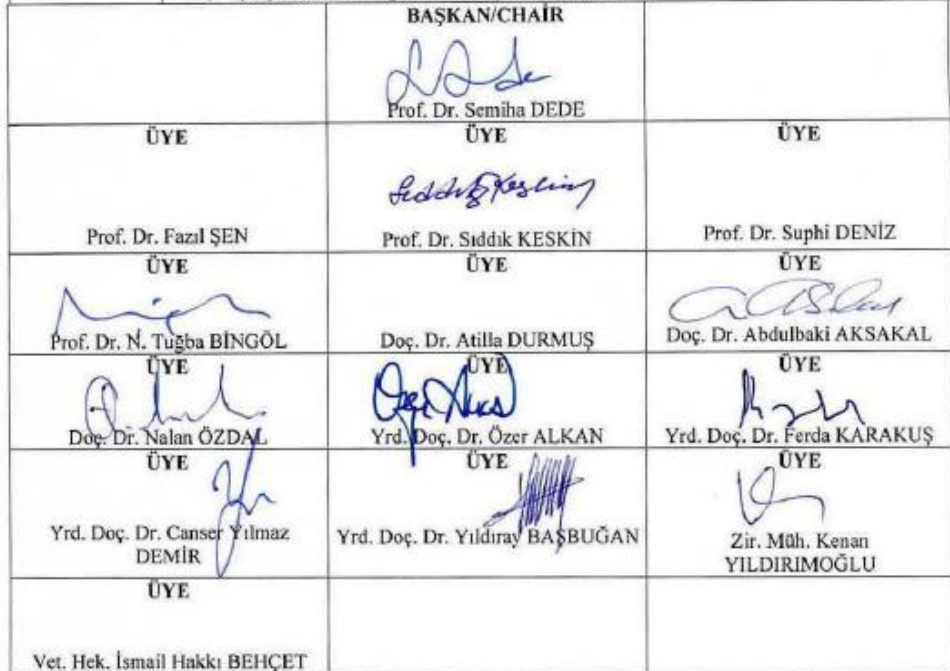 BAŞKAN/CHAİR
Prof. Dr. Semiha DEDE
ÜYE
Prof. Dr. Fazıl ŞEN
ÜYE
Prof. Dr. Sıddık KESKİN
ÜYE
Prof. Dr. Suphi DENİZ
ÜYE
Prof. Dr. N. Tuğba BİNGÖL
ÜYE
Doç. Dr. Atilla DURMUŞ
ÜYE
Doç. Dr. Abdulbaki AKSAKAL
ÜYE
Doç. Dr. Nalan ÖZDAL
ÜYE
Yrd. Doç. Dr. Özer ALKAN
ÜYE
Yrd. Doç. Dr. Ferda KARAKUŞ
ÜYE
Yrd. Doç. Dr. Canser Yılmaz
DEMİR
ÜYE
Yrd. Doç. Dr. Yıldıray BAŞBUĞAN
ÜYE
Zir. Müh. Kenan
YILDIRIMOĞLU
ÜYE
Vet. Hek. İsmail Hakkı BEHÇET